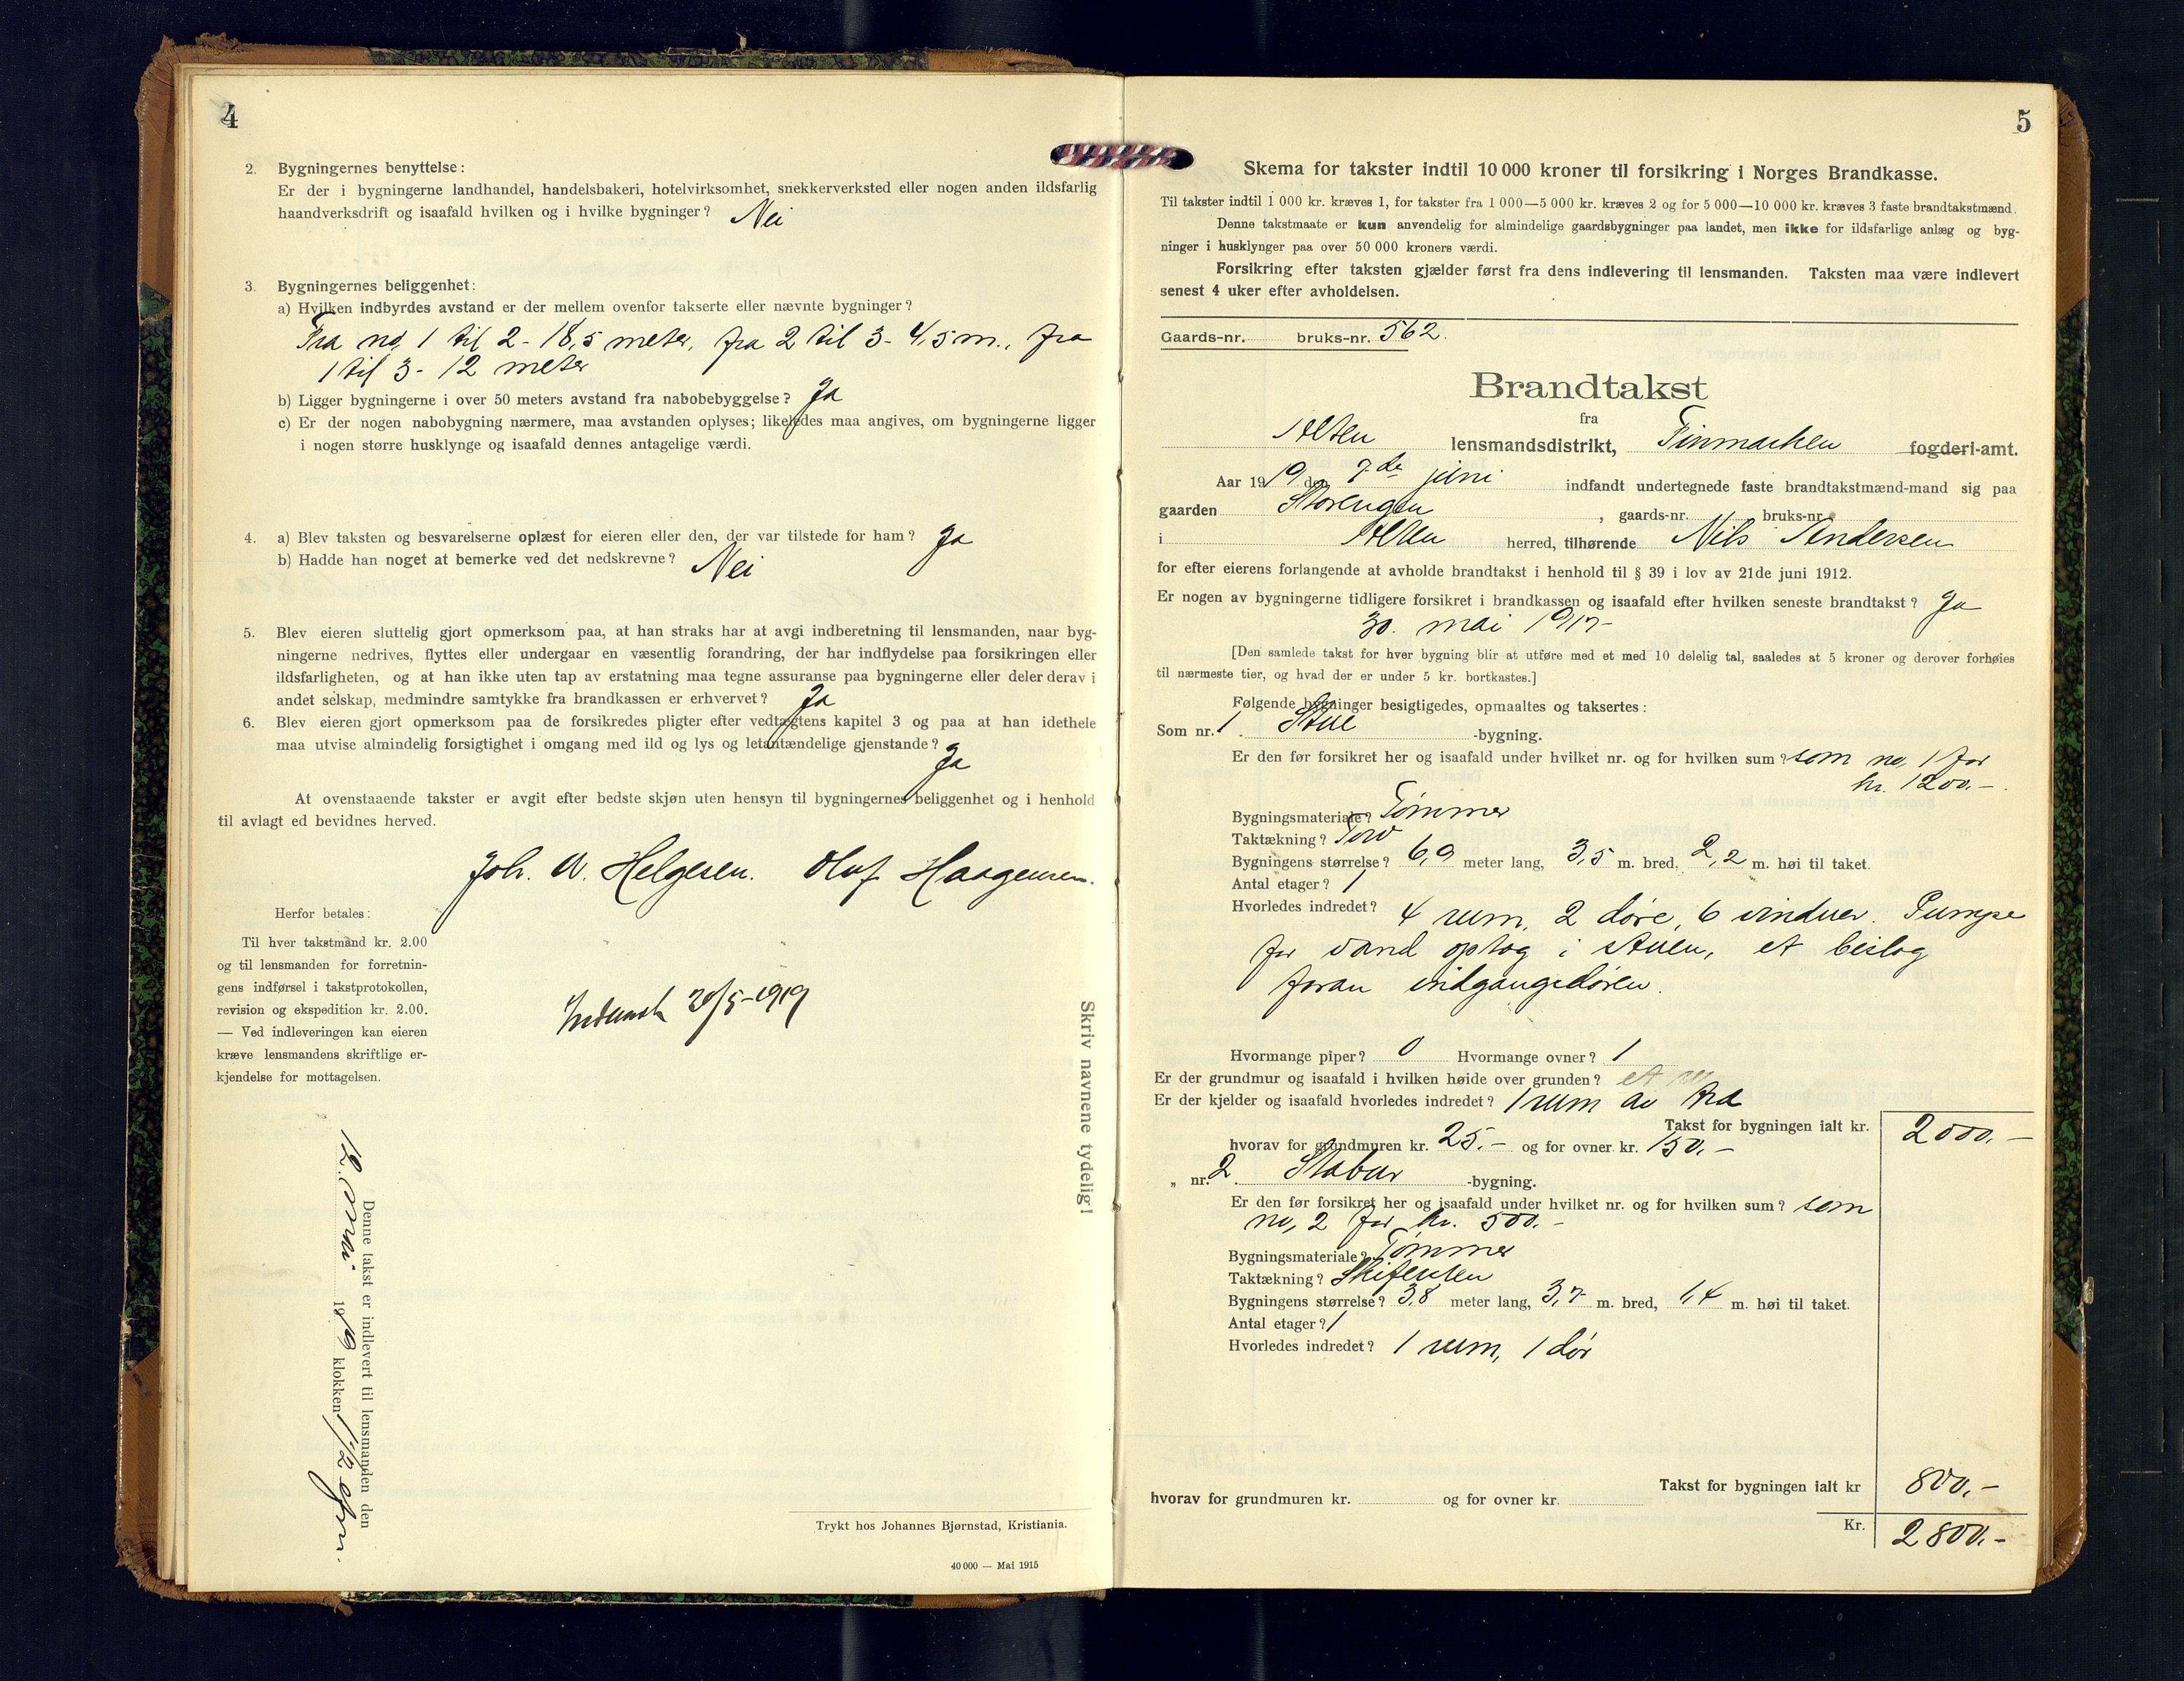 4
2. Bygningernes benyttelse:
Er der i bygningerne landhandel, handelsbakeri, hotelvirksomhet, snekkerverksted eller nogen anden ildsfarlig
haandverksdrift og isaafald hvilken og i hvilke bygninger? Nei
3. Bygningernes beliggenhet:
a) Hvilken indbyrdes avstand er der mellem ovenfor takserte eller nævnte bygninger?
Fra no, 1 til 2 - 18,5 meter, fra 2 til 3 - 4,5 m., fra
1 til 3 - 12 meter
b) Ligger bygningerne i over 50 meters avstand fra nabobebyggelse? Ja
c) Er der nogen nabobygning nærmere, maa avstanden oplyses; likeledes maa angives, om bygningerne ligger
i nogen større husklynge og isaafald dennes antagelige værdi.
4. a) Blev taksten og besvarelserne oplæst for eieren eller den, der var tilstede for ham? Ja
b) Hadde han noget at bemerke ved det nedskrevne? Nei
5. Blev eieren sluttelig gjort opmerksom paa, at han straks har at avgi indberetning til lensmanden, naar byg-
ningerne nedrives, flyttes eller undergaar en væsentlig forandring, der har indflydelse paa forsikringen eller
ildsfarligheten, og at han ikke uten tap av erstatning maa tegne assuranse paa bygningerne eller deler derav i
andet selskap, medmindre samtykke fra brandkassen er erhvervet? Ja
6. Blev eieren gjort opmerksom paa de forsikredes pligter efter vedtægtens kapitel 3 og paa at han idethele
maa utvise almindelig forsigtighet i omgang med ild og lys og letantændelige gjenstande? Ja
At ovenstaaende takster er avgit efter bedste skjøn uten hensyn til bygningernes beliggenhet og i henhold
til avlagt ed bevidnes herved.
Joh. A. Helgesen. Oluf Haagensen.
Herfor betales:
Til hver takstmand kr. 2.00
og til lensmanden for forretnin-
gens indførsel i takstprotokollen,
revision og ekspedition kr. 2.00.
— Ved indleveringen kan eieren
kræve lensmandens skriftlige er-
kjendelse for mottagelsen.
Indsendt 20/5-1919
Skriv navnene tydelig!
Denne takst er indlevert til lensmanden den
12. mai 1919 klokken 1 1/2 efm.
Trykt hos Johannes Bjørnstad, Kristiania.
40 000 — Mai 1915
5
Skema for takster indtil 10 000 kroner til forsikring i Norges Brandkasse.
Til takster indtil 1 000 kr. kræves 1, for takster fra 1 000—5 000 kr. kræves 2 og for 5 000—10 000 kr. kræves 3 faste brandtakstmænd.
Denne takstmaate er kun anvendelig for almindelige gaardsbygninger paa landet, men ikke for ildsfarlige anlæg og byg-
ninger i husklynger paa over 50 000 kroners værdi.
Forsikring efter taksten gjælder først fra dens indlevering til lensmanden. Taksten maa være indlevert
senest 4 uker efter avholdelsen.
Gaards-nr. bruks-nr. 562.
Brandtakst
fra
Alten lensmandsdistrikt, Finmarken fogderi-amt.
Aar 1919 den 7de juni indfandt undertegnede faste brandtakstmænd-mand sig paa
gaarden Storengen, gaards-nr. bruks-nr.
i Alten herred, tilhørende Nils Andersen
for efter eierens forlangende at avholde brandtakst i henhold til § 39 i lov av 21de juni 1912.
Er nogen av bygningerne tidligere forsikret i brandkassen og isaafald efter hvilken seneste brandtakst? Ja
30. mai 1917-
[Den samlede takst for hver bygning blir at utføre med et med 10 delelig tal, saaledes at 5 kroner og derover forhøies
til nærmeste tier, og hvad der er under 5 kr. bortkastes.]
Følgende bygninger besigtigedes, opmaaltes og taksertes:
Som nr. 1. Stue -bygning.
Er den før forsikret her og isaafald under hvilket nr. og for hvilken sum? som no, 1 for
kr. 1200.-
Bygningsmateriale? Tømmer
Taktækning? Torv
Bygningens størrelse? 6,9 meter lang, 3,5 m. bred, 2,2 m. høi til taket.
Antal etager? 1
Hvorledes indredet? 4 rum, 2 døre, 6 vinduer. Pumpe
for vand optog i stuen, et beslag
foran indgangsdøren.
Hvormange piper? 0 Hvormange ovner? 1
Er der grundmur og isaafald i hvilken høide over grunden?
Er der kjelder og isaafald hvorledes indredet? 1 rum av træ
Takst for bygningen ialt kr. 2000.-
hvorav for grundmuren kr. 25.- og for ovner kr. 150.-
„ nr. 2. Stabur -bygning.
Er den før forsikret her og isaafald under hvilket nr. og for hvilken sum? som
no, 2 for kr. 500.-
Bygningsmateriale? Tømmer
Taktækning?
Bygningens størrelse? 3,8 meter lang, 3,7 m. bred, 1,4 m. høi til taket.
Antal etager? 1
Hvorledes indredet? 1 rum, 1 dør
Takst for bygningen ialt kr 800.-
hvorav for grundmuren kr. og for ovner kr.
Kr. 2800.-